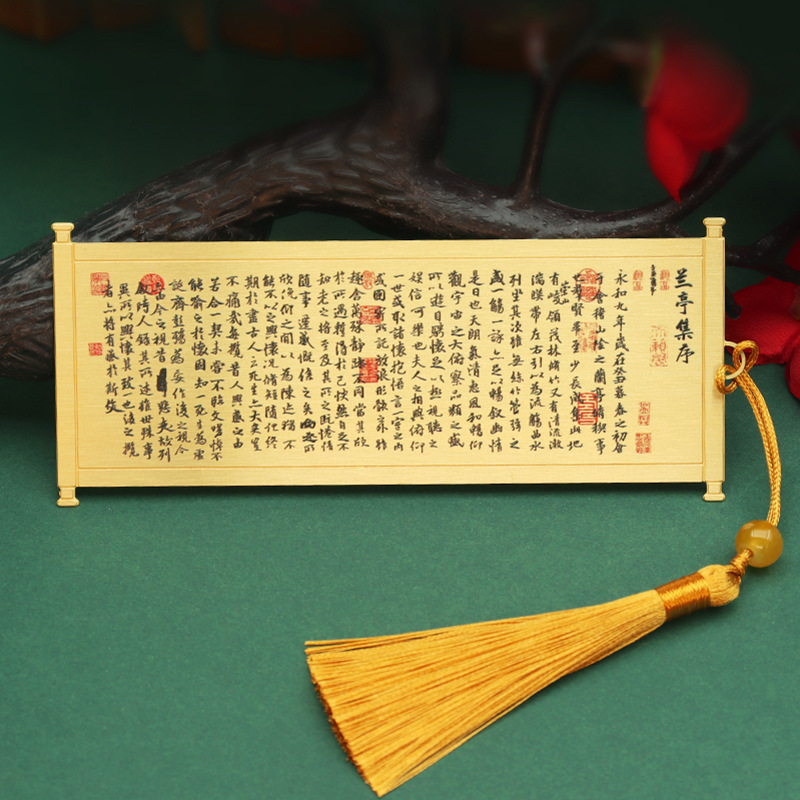 兰亭集序
永和九年歲在癸丑暮春之初會
于會稽山陰之蘭亭脩稧事
也羣賢畢至少長咸集此地
有崇山峻領茂林脩竹又有清流激
湍暎帶左右引以為流觴曲水
列坐其次雖無絲竹管弦之
盛一觴一詠亦足以暢敘幽情
是日也天朗氣清惠風和暢仰
觀宇宙之大俯察品類之盛
所以遊目騁懷足以極視聽之
娛信可樂也夫人之相與俯仰
一世或取諸懷抱悟言一室之內
或因寄所託放浪形骸之外雖
趣舍萬殊靜躁不同當其欣
於所遇蹔得於己怏然自足不
知老之將至及其所之既惓情
隨事遷感慨係之矣向之所
欣俛仰之閒以為陳迹猶不
能不以之興懷況脩短隨化終
期於盡古人云死生亦大矣豈
不痛哉每攬昔人興感之由
若合一契未嘗不臨文嗟悼不
能喻之於懷固知一死生為虛
誕齊彭殤為妄作後之視今
亦由今之視昔悲夫故列
敘時人錄其所述雖世殊事
異所以興懷其致一也後之攬
者亦將有感於斯文